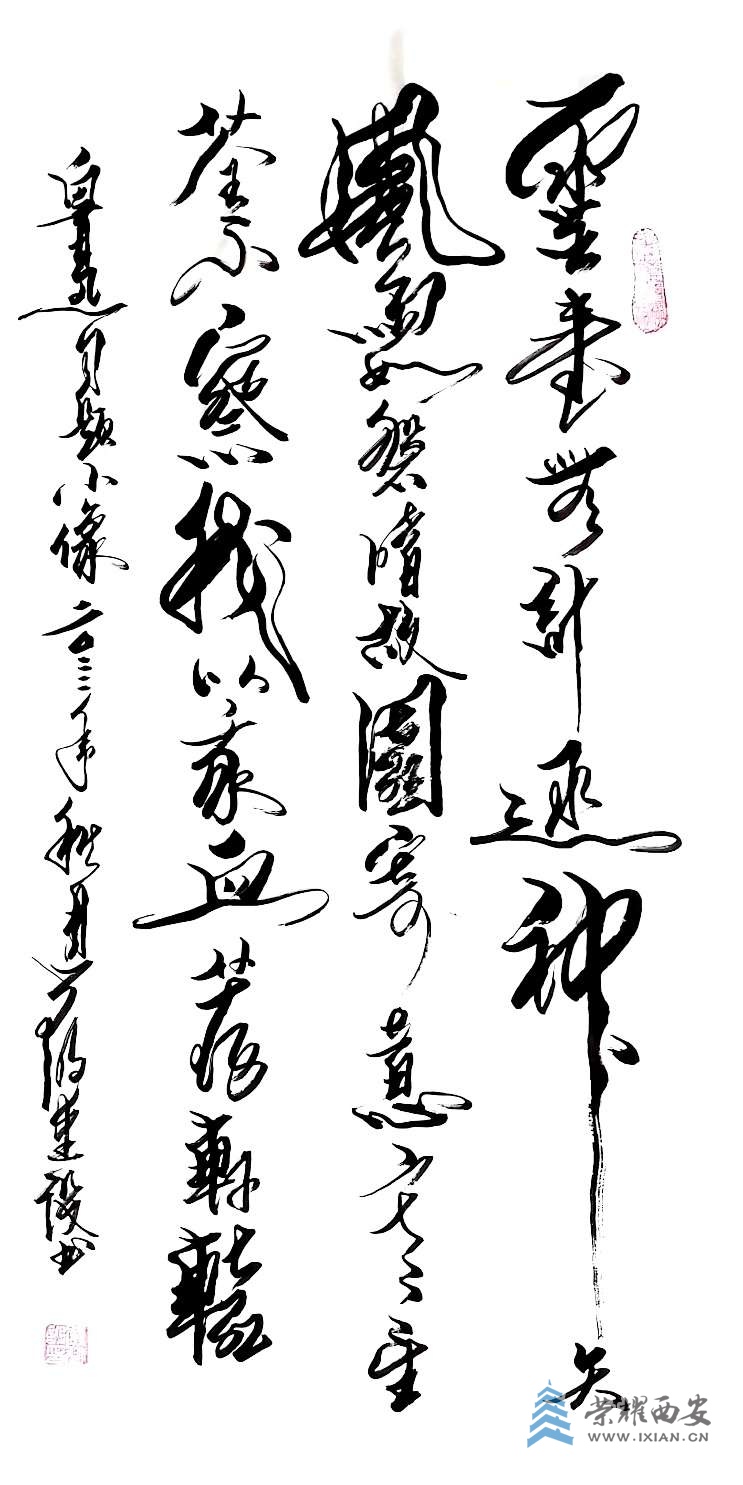 靈臺無計逃神矢
風雨如磐暗故園寄意寒星
荃不察我以我血薦軒轅
魯迅自題小像二〇二三年秋月建設書
荣耀西安
WWW.IXIAN.CN